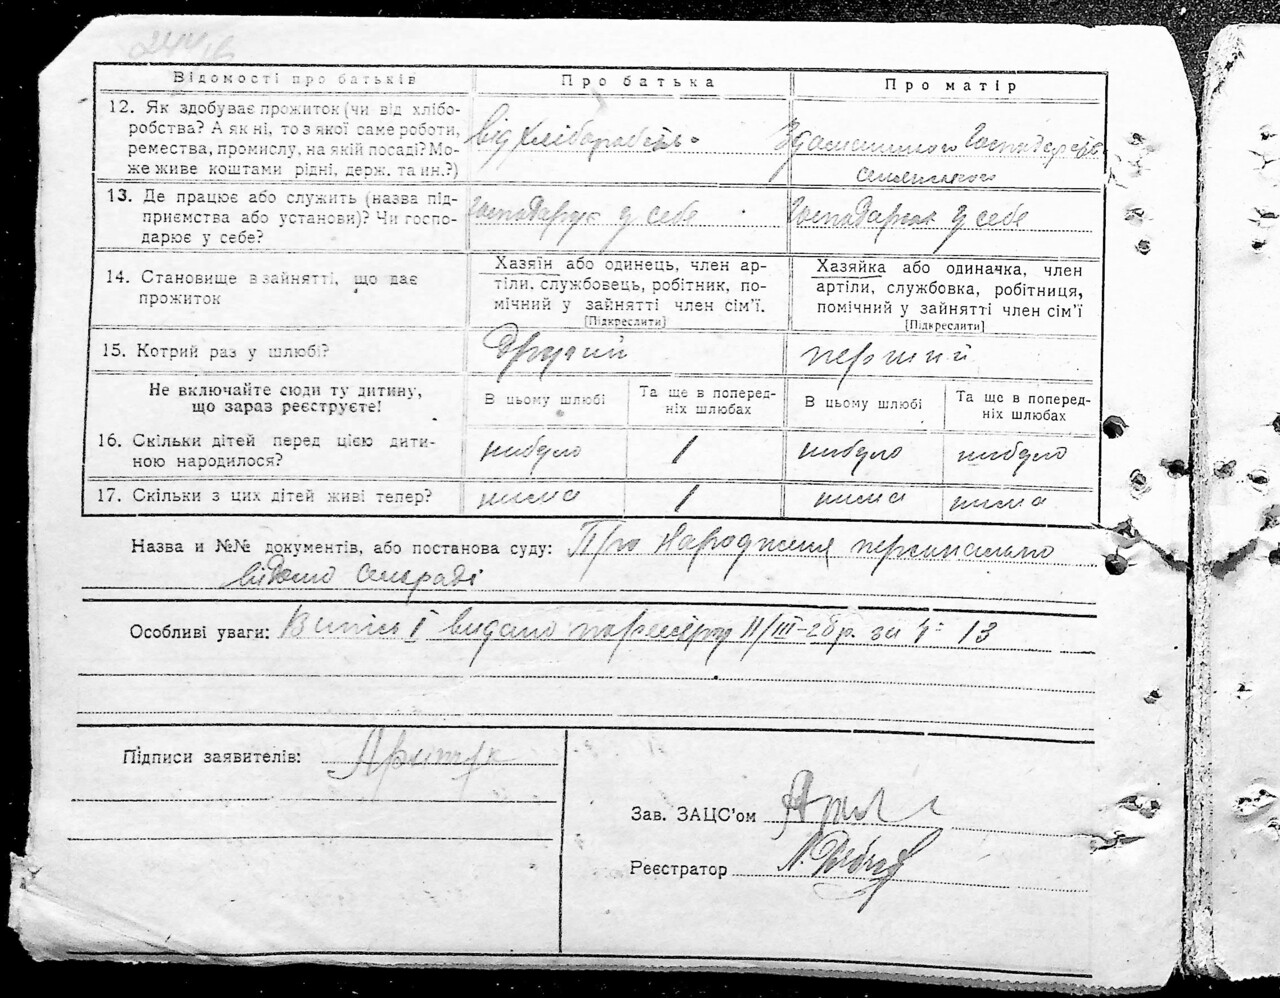 Відомості про батьків
Про батька
Про матір
12. Як здобуває прожиток (чи від хлібо-
робства? А як ні, то з якої саме роботи,
ремества, промислу, на якій посаді? Мо-
же живе коштами рідні, держ. та ин.?)
від хліборобств
господарств
13. Де працює або служить (назва під-
приємства або установи)? Чи госпо-
дарює у себе?
господарює у себе
господарює у себе
14. Становище в зайнятті, що дає
прожиток
Хазяїн або одинець, член ар-
тіли, службовець, робітник, по-
мічний у зайнятті член сім'ї.
[Підкреслити]
Хазяйка або одиначка, член
артіли, службовка, робітниця,
помічний у зайнятті член сім'ї
[Підкреслити]
15. Котрий раз у шлюбі?
другий
перший
Не включайте сюди ту дитину,
що зараз реєструєте!
В цьому шлюбі
Та ще в поперед-
ніх шлюбах
В цьому шлюбі
Та ще в поперед-
ніх шлюбах
16. Скільки дітей перед цією дити-
ною народилося?
небуло 1 небуло небуло
17. Скільки з цих дітей живі тепер?
нема 1 нема нема
Назва и №№ документів, або постанова суду: Про народження персонально
відомо сельраді
Особливі уваги: Витяг І видано по реєстру 11/III-26р. за ч. 13
Підписи заявителів:
Зав. ЗАЦС'ом
Реєстратор